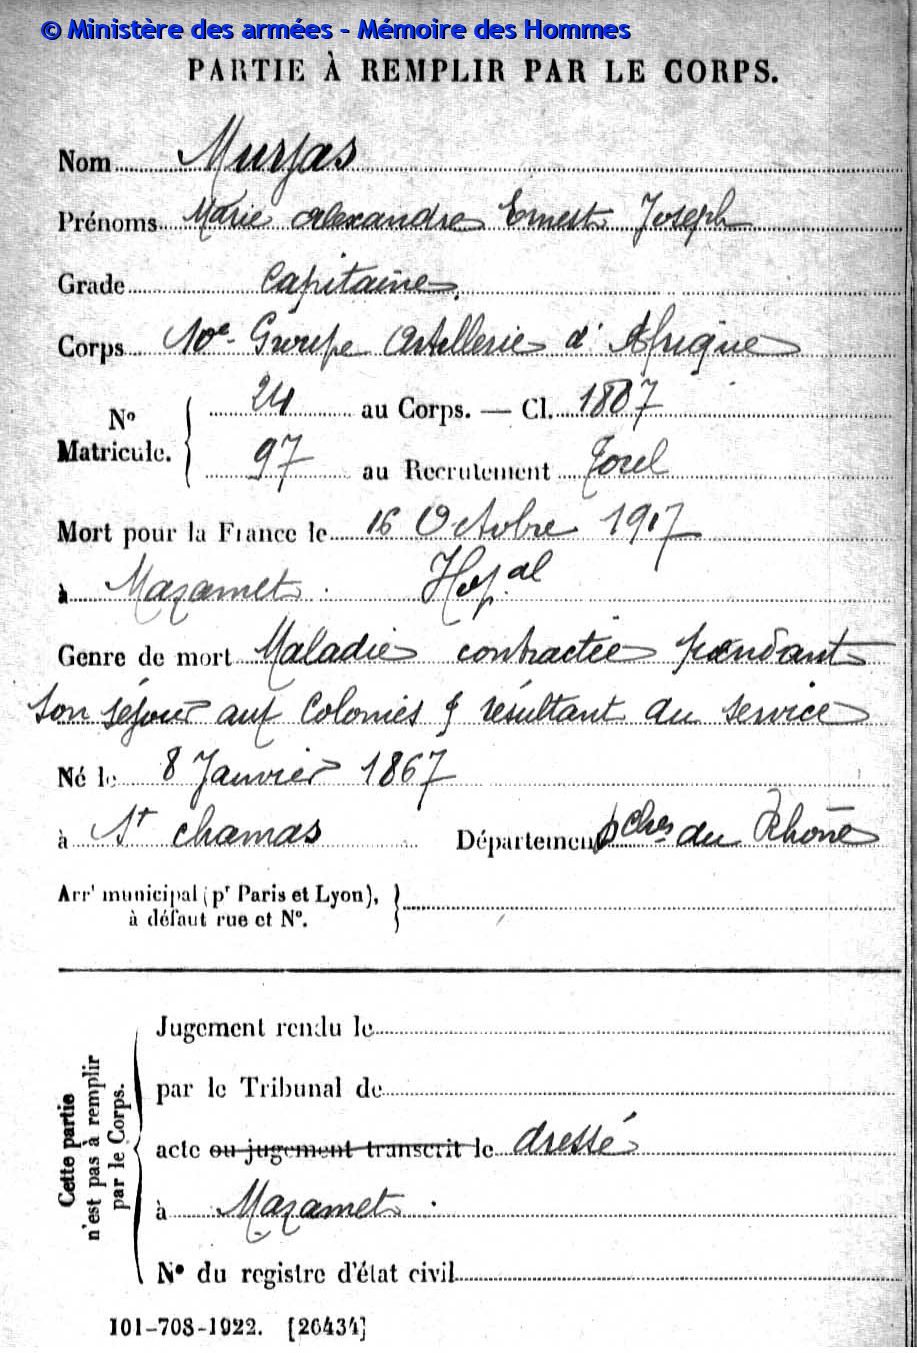 © Ministère des armées - Mémoire des Hommes
PARTIE À REMPLIR PAR LE CORPS.
Nom Murjas
Prénoms Marie Alexandre Ernest Joseph
Grade Capitaine
Corps 10e Groupe Artillerie d'Afrique
No Matricule. { 24 au Corps. — Cl. 1887
97 au Recrutement
Mort pour la France le 16 Octobre 1917
à Mazamet. Hopal
Genre de mort Maladie contractée pendant
son séjour aux Colonies & résultant du service
Né le 8 Janvier 1867
à St Chamas Département Bches du Rhône
Arrt municipal (pr Paris et Lyon), }
à défaut rue et No.
Cette partie n'est pas à remplir par le Corps.
Jugement rendu le
par le Tribunal de
acte ou jugement transcrit le dressé
à Mazamet.
No du registre d'état civil
101-708-1922. [26434]